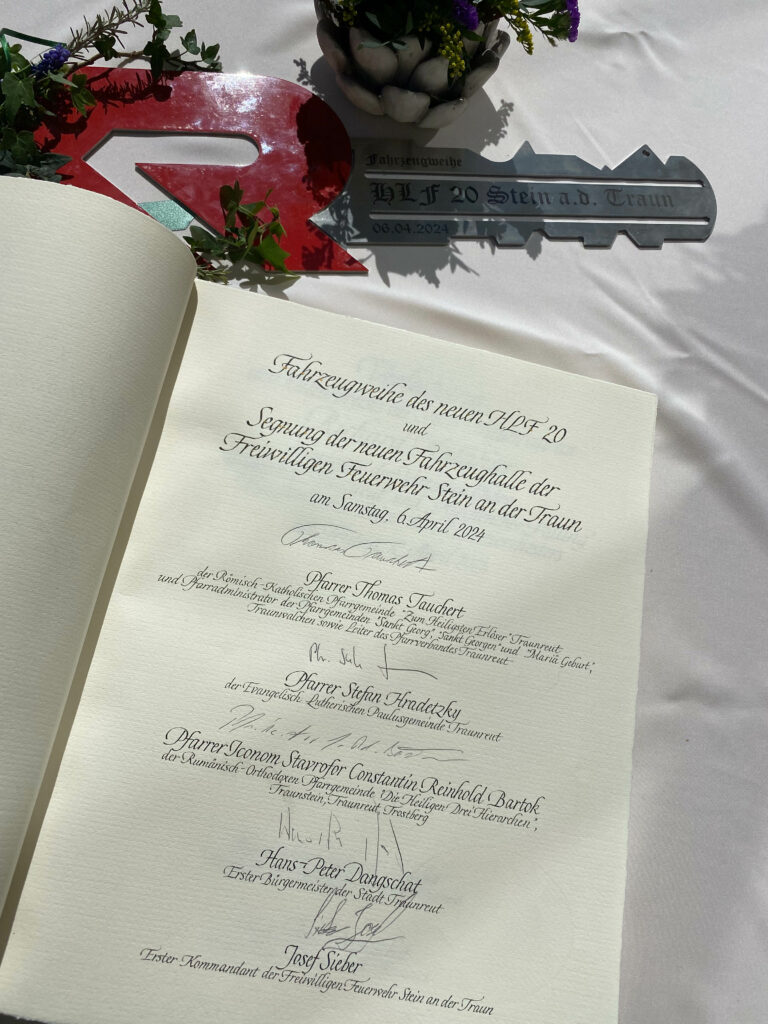 Fahrzeugweihe
HLF 20 Stein a.d. Traun
06.04.2024
Fahrzeugweihe des neuen HLF 20
und
Segnung der neuen Fahrzeughalle der
Freiwilligen Feuerwehr Stein an der Traun
am Samstag, 6. April 2024
Thomas Tauchert
Pfarrer Thomas Tauchert
der Römisch-Katholischen Pfarrgemeinde "Zum Heiligsten Erlöser" Traunreut
und Pfarradministrator der Pfarrgemeinden "Sankt Georg", "Sankt Georgen" und "Mariä Geburt",
Traunwalchen sowie Leiter des Pfarrverbandes Traunreut
Pfarrer Stefan Hradetzky
der Evangelisch-Lutherischen Paulusgemeinde Traunreut
Pfarrer Iconom Stavrofor Constantin Reinhold Bartok
der Rumänisch-Orthodoxen Pfarrgemeinde "Die Heiligen Drei Hierarchen",
Traunstein, Traunreut, Trostberg
Hans-Peter Dangschat
Erster Bürgermeister der Stadt Traunreut
Josef Sieber
Erster Kommandant der Freiwilligen Feuerwehr Stein an der Traun